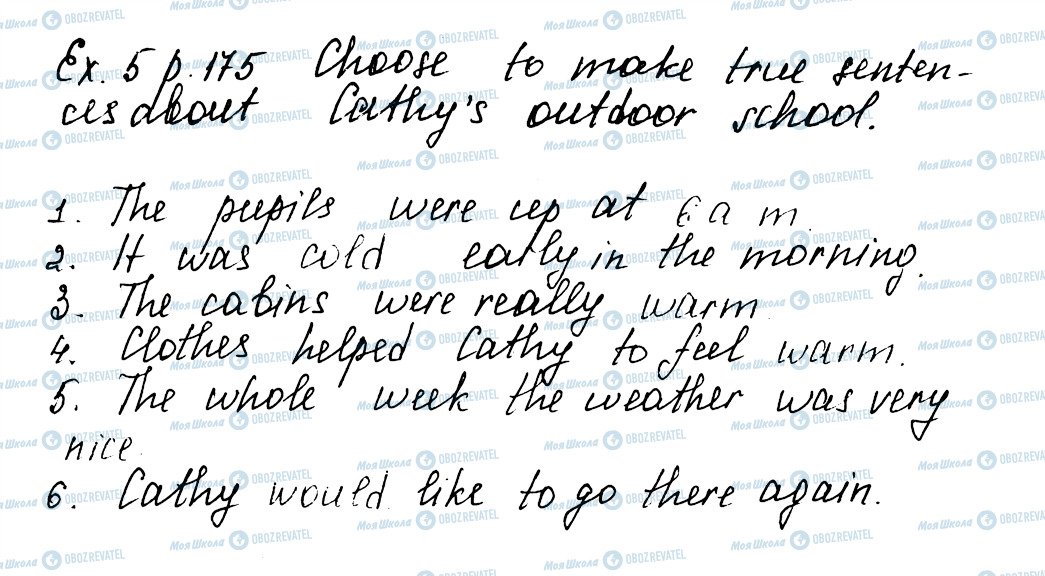 Ex. 5 p. 175 Choose to make true senten-
ces about Cathy's outdoor school.
1. The pupils were up at 6 a m.
2. It was cold early in the morning.
3. The cabins were really warm.
4. Clothes helped Cathy to feel warm.
5. The whole week the weather was very
nice.
6. Cathy would like to go there again.